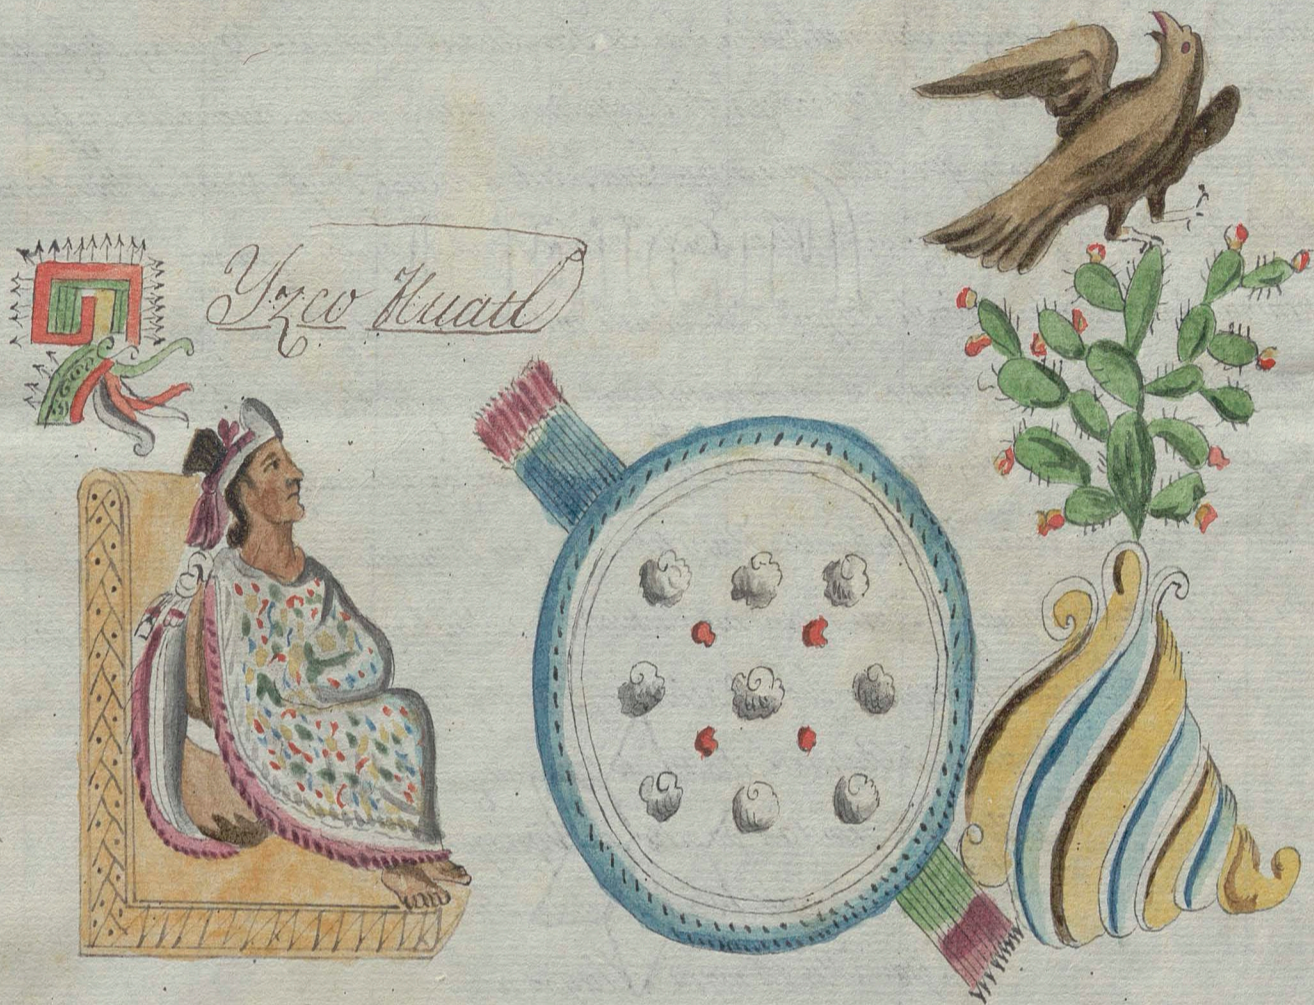 Yzco Huatl